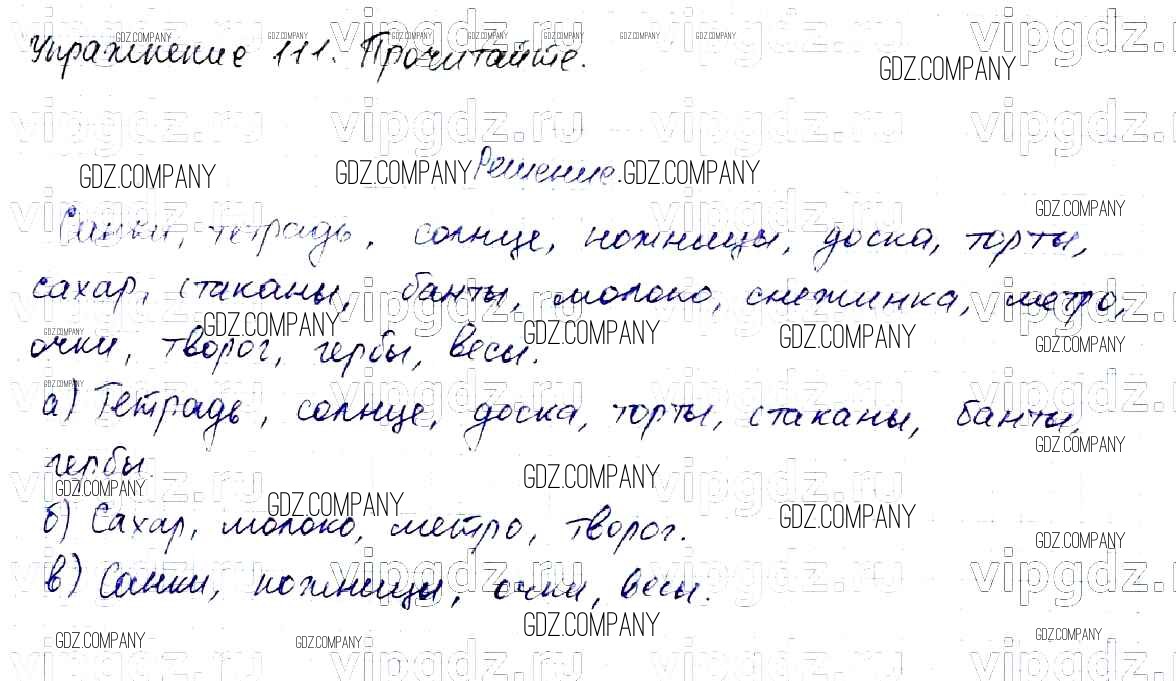 Упражнение 111. Прочитайте.
Решение.
Санки, тетрадь, солнце, ножницы, доска, торты,
сахар, стаканы, банты, молоко, снежинка, метро,
очки, творог, гербы, весы.
а) Тетрадь, солнце, доска, торты, стаканы, банты,
гербы.
б) Сахар, молоко, метро, творог.
в) Санки, ножницы, очки, весы.